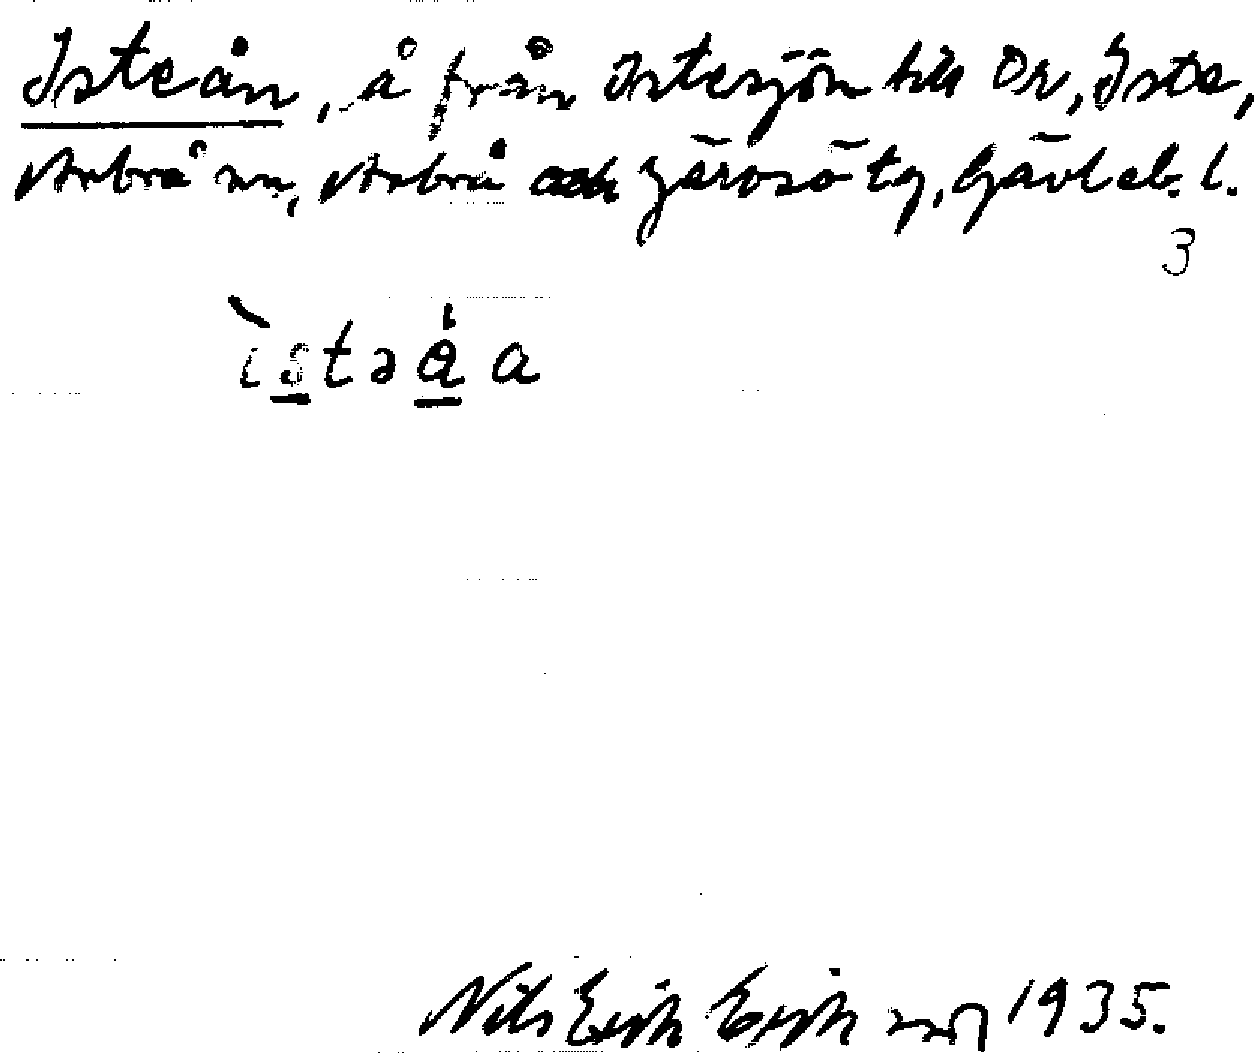 Isteån, å från Istesjön till Ov, Iste,
Arbrå sn, Arbrå och Järvsö tg, Gävleb. l.
3
ìstəå̀a
Nils Erik Erikson 1935.